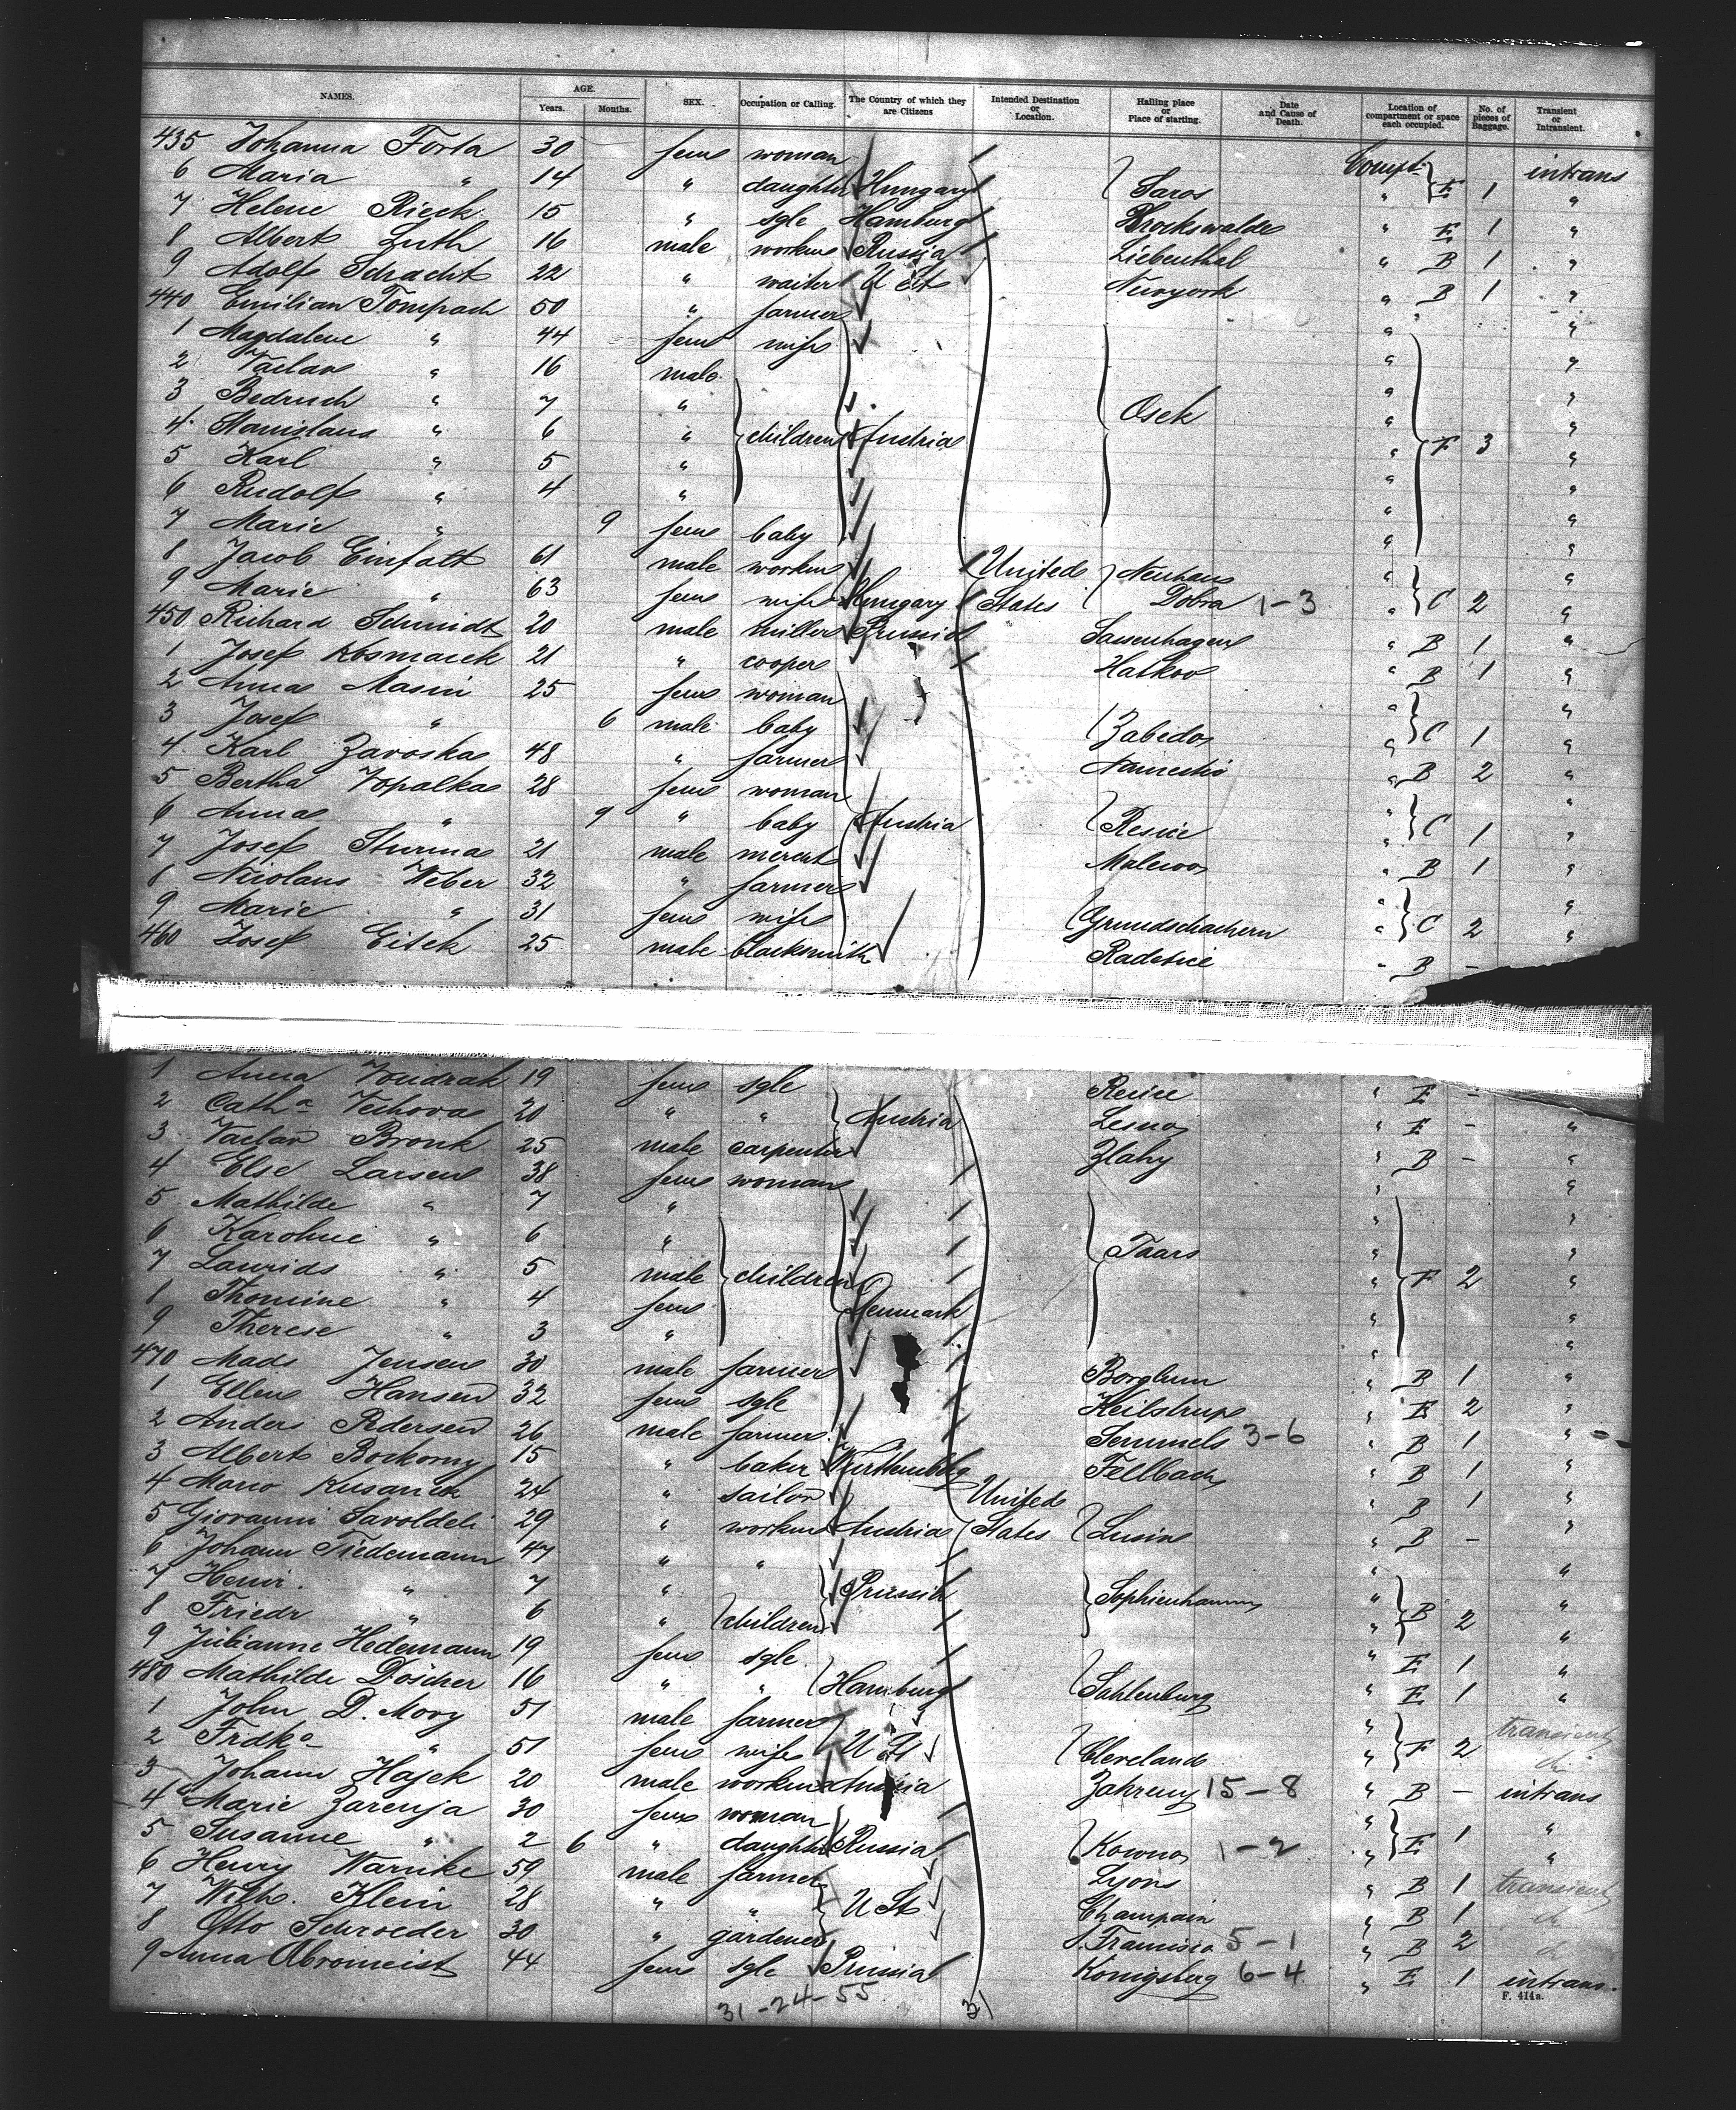 NAMES. AGE. Years. Months. SEX. Occupation or Calling. The Country of which they are Citizens Intended Destination or Location. Hailing place or Place of starting. Date and Cause of Death. Location of compartment or space each occupied. No. of pieces of Baggage. Transient or Intransient.
435 Johanna Forta 30 fem woman Compt intrans
6 Maria " 14 " daughter Hungary Saros " E 1 "
7 Helene Rieck 15 " sgle Hamburg Brockswalde " E 1 "
8 Albert Luth 16 male worken Russia Liebenthal " B 1 "
9 Adolf Schacht 22 " waiter U Sts Newyork " B 1 "
440 Emilian Tompach 50 " farmer " "
1 Magdalene " 44 fem wife " "
2 Vaclav " 16 male " "
3 Bedrich " 7 " " "
4 Stanislaus " 6 " children Austria Osek " F 3 "
5 Karl " 5 " " "
6 Rudolf " 4 " " "
7 Marie " 9 fem baby " "
8 Jacob Einfalt 61 male worken United Neuhaus " "
9 Marie " 63 fem wife Hungary States Dobra 1-3 " C 2 "
450 Richard Schmidt 20 male miller Prussia Sassenhagen " B 1 "
1 Josef Kosmarek 21 " cooper Halkov " B 1 "
2 Anna Masin 25 fem woman " "
3 Josef " 6 male baby Zabedov " C 1 "
4 Karl Zavoska 48 " farmer Namestio " B 2 "
5 Bertha Vopalka 28 fem woman " "
6 Anna " 9 " baby Austria Resice " C 1 "
7 Josef Sturma 21 male mercht Malecov " B 1 "
8 Nicolaus Weber 32 " farmer "
9 Marie " 31 fem wife Grundschachern " C 2 "
460 Josef Eisek 25 male blacksmith Radetice " B -
1 Anna Vondrak 19 fem sgle Resice " E -
2 Catha Vechova 20 " " Austria Lesno " E - "
3 Vaclav Bronk 25 male carpenter Zlahy " B - "
4 Else Larsen 38 fem woman " "
5 Mathilde " 7 " " "
6 Karoline " 6 " Taars " "
7 Laurids " 5 male children " F 2 "
8 Thomine " 4 fem Denmark " "
9 Therese " 3 " " "
470 Mads Jensen 30 male farmer Borglum " B 1 "
1 Ellen Hansen 32 fem sgle Keilstrup " E 2 "
2 Anders Pedersen 26 male farmer Semmels 3-6 " B 1 "
3 Albert Bockorny 15 " baker Württemberg Fellbach " B 1 "
4 Mario Kusanich 24 " sailor United " B 1 "
5 Giovanni Savoldeli 29 " worken Austria States Lusin " B - "
6 Johann Tiedemann 47 " " " "
7 Heinr. " 7 " Prussia Sophienhamm " B 2 "
8 Friedr " 6 " children " "
9 Julianne Hedemann 19 fem sgle " E 1 "
480 Mathilde Döscher 16 " " Hamburg Sahlenburg " E 1 "
1 John D. Movy 51 male farmer " transient
2 Frdke " 51 fem wife U St Cleveland " F 2 do
3 Johann Hajek 20 male worken Austria Zahreny 15-8 " B - intrans
4 Marie Zarenja 30 fem woman " "
5 Susanne " 2 6 " daughter Russia Kowno 1-2 " E 1 "
6 Henry Warnike 59 male farmer Lyons " B 1 transient
7 Wilh. Klein 28 " " U St Champain " B 1 do
8 Otto Schroeder 30 " gardener S. Francisco 5-1 " B 2 do
9 Anna Abromeist 44 fem sgle Prussia Konigsberg 6-4 " E 1 intrans.
31-24-55 31 F. 414a.